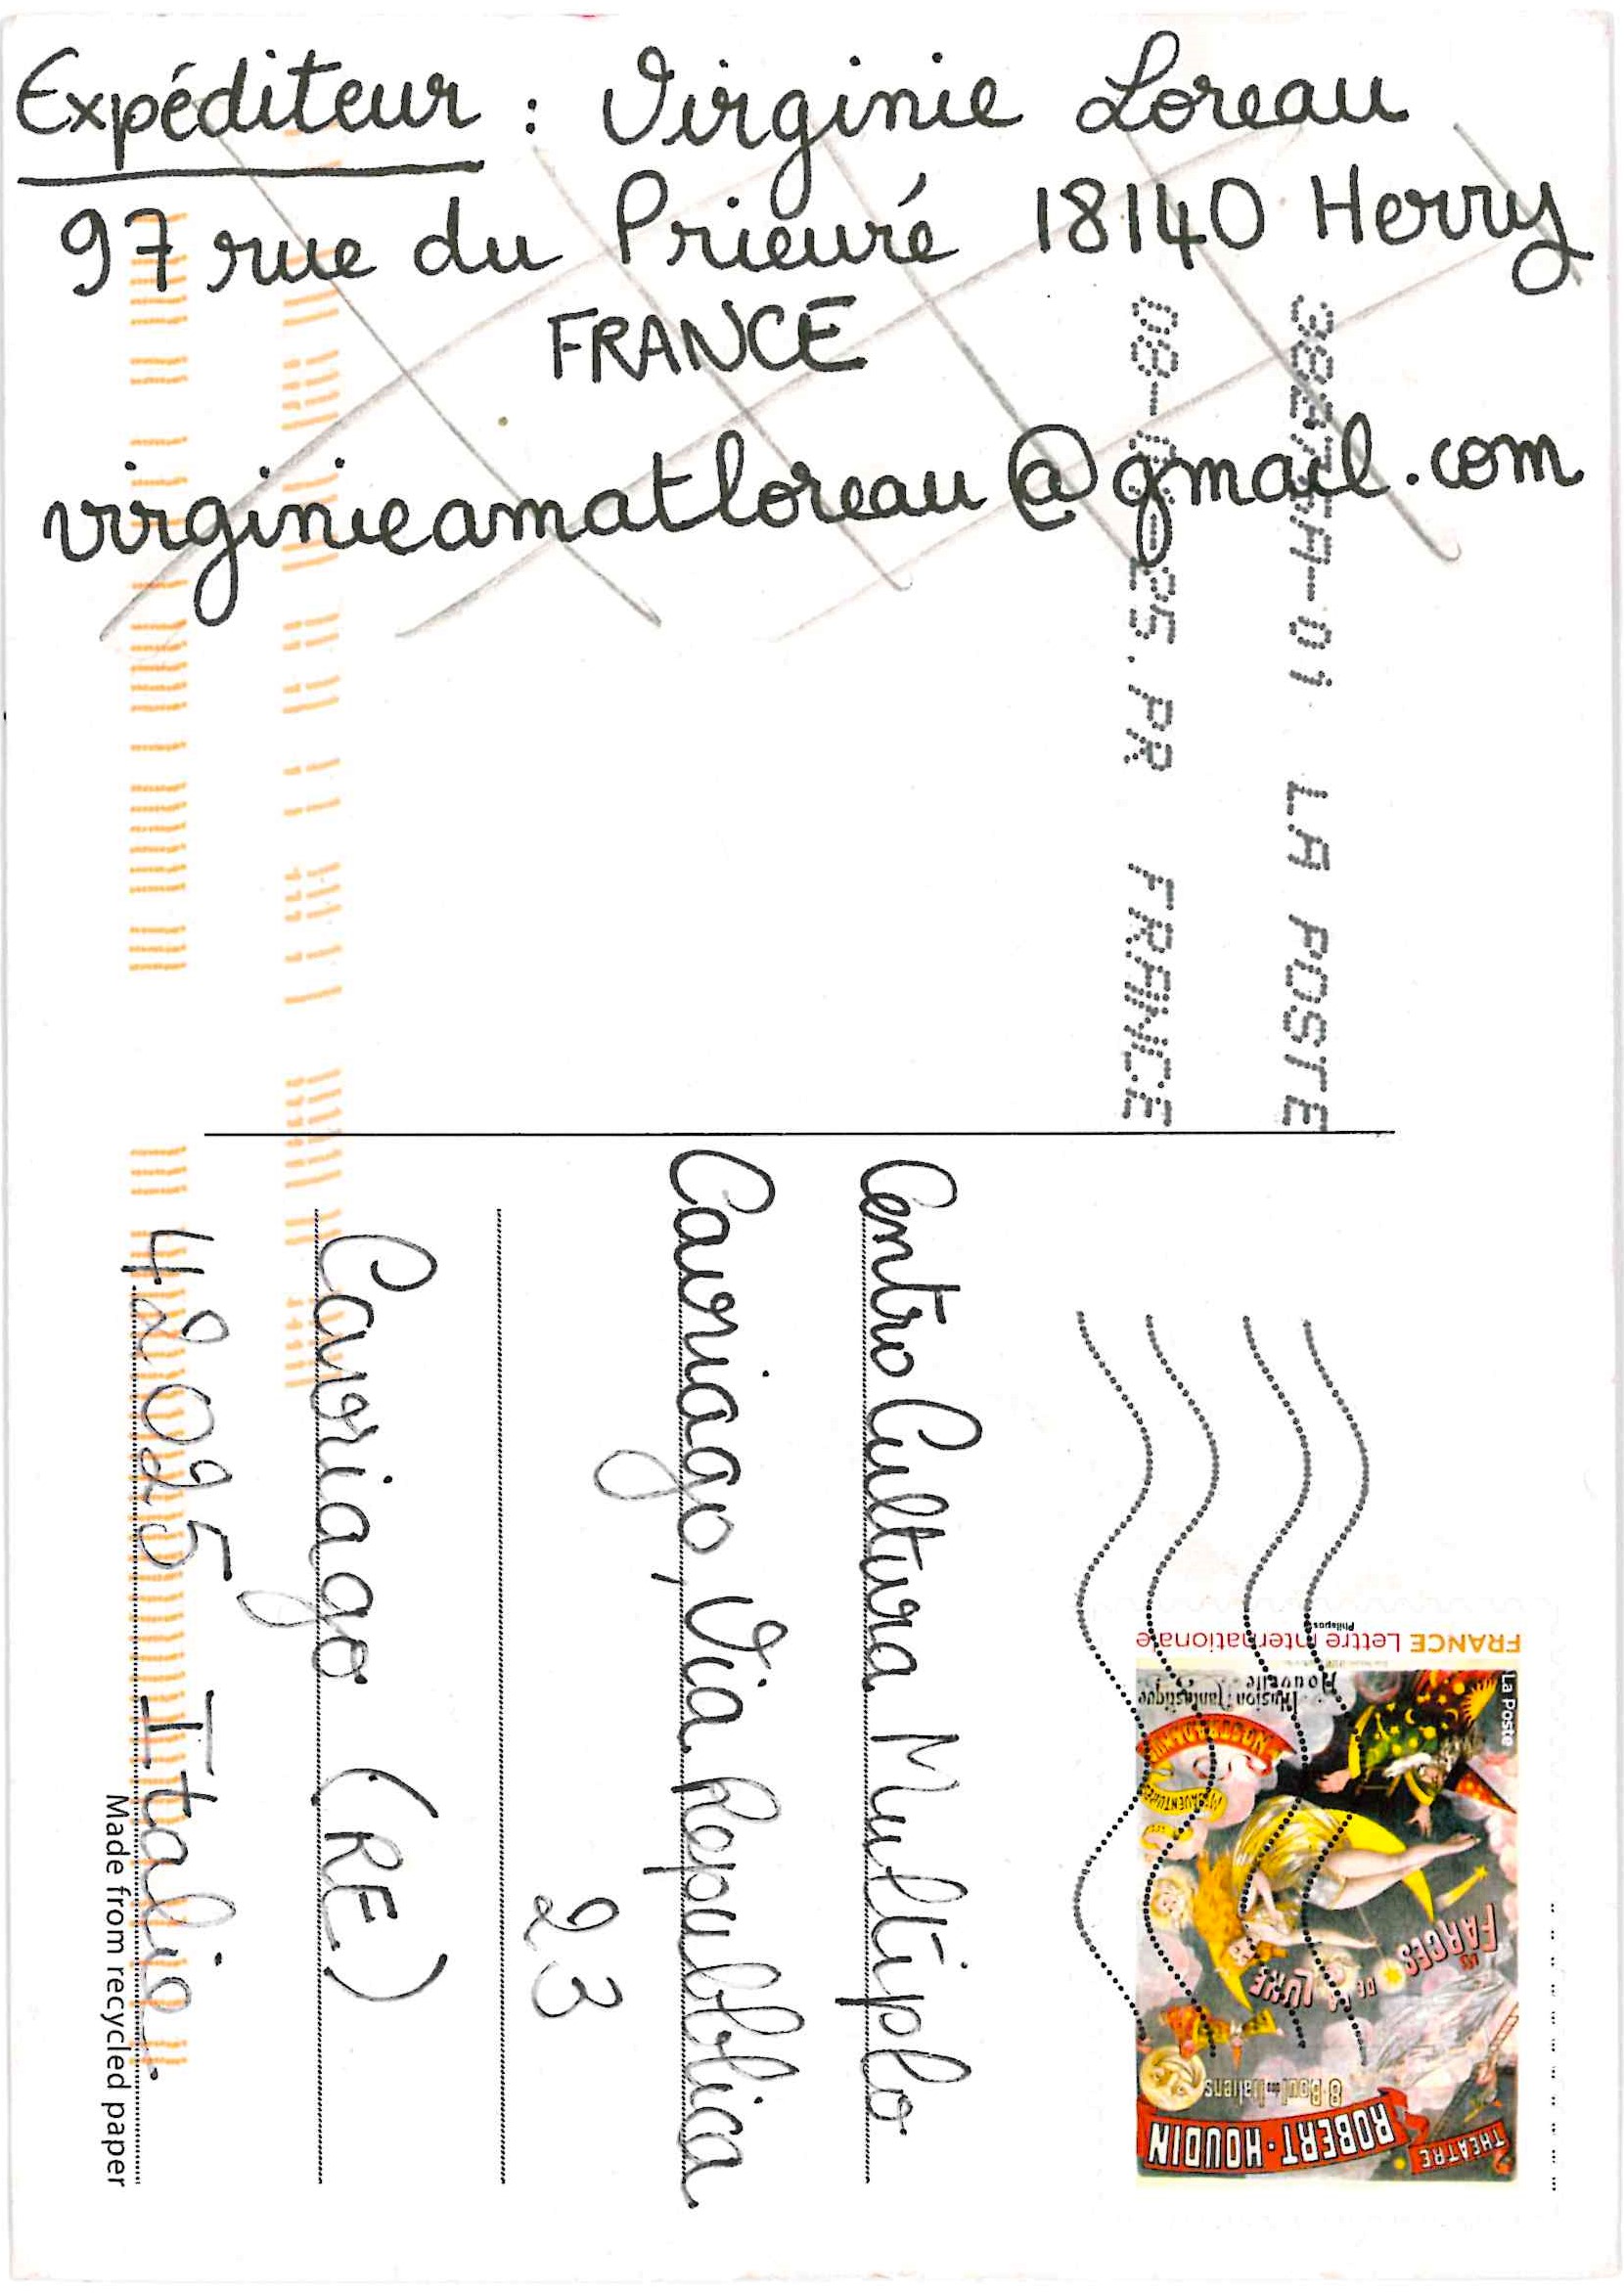 Expéditeur : Virginie Loreau
97 rue du Prieuré 18140 Herry
FRANCE
virginieamatloreau@gmail.com
-01 LA POSTE
25.PR FRANCE
FRANCE Lettre Internationale
Philaposte
La Poste
THEATRE
ROBERT-HOUDIN
8 Boul. des Italiens
LES FARCES
DE LA LUNE
Illusion Fantastique
Nouvelle
Centro Cultura Multiplo
Cavriago, Via Repubblica
23
Cavriago (RE)
42025 Italie.
Made from recycled paper